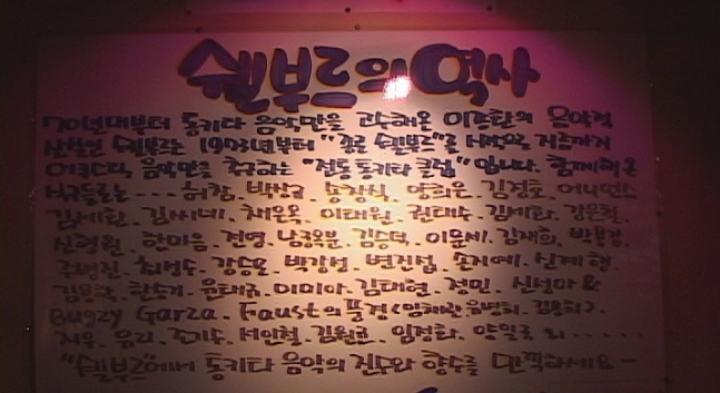 쉘부르의 역사
70년대부터 통키타 음악만을 고수해온 이종환의 음악적
산실인 쉘부르는 1973년부터 "종로 쉘부르"로 시작으로 지금까지
어쿠스틱 음악만을 추구하는 "전통 통키타 클럽" 입니다. 함께해온
식구들로는 ... 허참. 박상규. 송창식. 양희은. 김정호. 어니언스
김세환. 김씨네. 채은옥. 이태원. 권태수. 김세화. 강은철.
신형원 한마음. 전영. 남궁옥분. 김승덕. 이문세. 김재희. 박
주병진. 최성수. 강승모. 박강성. 변진섭. 손지예. 신계행.
김용국. 한승기. 윤태규. 이미아. 김태현. 정민. 신성아 &
Bugzy Garza. Faust의 풍경
지우. 유리. 조기수. 서인철. 김원규. 임정화. 양일국 외 ......
"쉘부르"에서 통키타 음악의 진수와 향수를 만끽하세요 ~